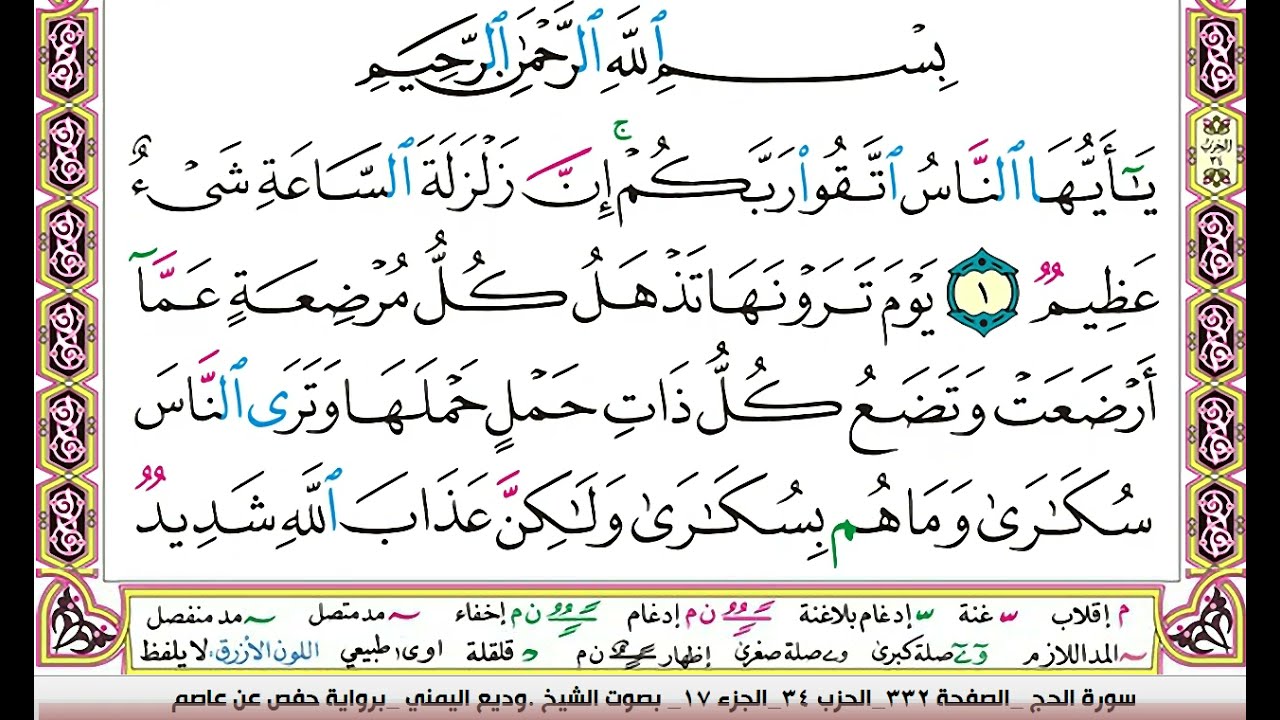 بِسْمِ ٱللَّهِ ٱلرَّحْمَٰنِ ٱلرَّحِيمِ
يَٰٓأَيُّهَا ٱلنَّاسُ ٱتَّقُوا۟ رَبَّكُمْ ۚ إِنَّ زَلْزَلَةَ ٱلسَّاعَةِ شَىْءٌ
عَظِيمٌ ١ يَوْمَ تَرَوْنَهَا تَذْهَلُ كُلُّ مُرْضِعَةٍ عَمَّآ
أَرْضَعَتْ وَتَضَعُ كُلُّ ذَاتِ حَمْلٍ حَمْلَهَا وَتَرَى ٱلنَّاسَ
سُكَٰرَىٰ وَمَا هُم بِسُكَٰرَىٰ وَلَٰكِنَّ عَذَابَ ٱللَّهِ شَدِيدٌ
الحزب ٣٤
م إقلاب غنة إدغام بلاغنة ن م إدغام ن م إخفاء مد متصل مد منفصل
المد اللازم صلة كبرى وے صلة صغرى إظهار ن م د قلقلة اوى طبيعي اللون الأزرق: لا يلفظ
سورة الحج _الصفحة ٣٣٢_الحزب ٣٤_الجزء ١٧_ بصوت الشيخ .وديع اليمني _برواية حفص عن عاصم